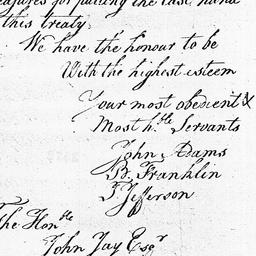 measures for putting the last hand
this treaty.
We have the honour to be
With the highest esteem
Your most obedient &
Most hble Servants
John Adams
B. Franklin
T. Jefferson
The Honble
John Jay Esqr